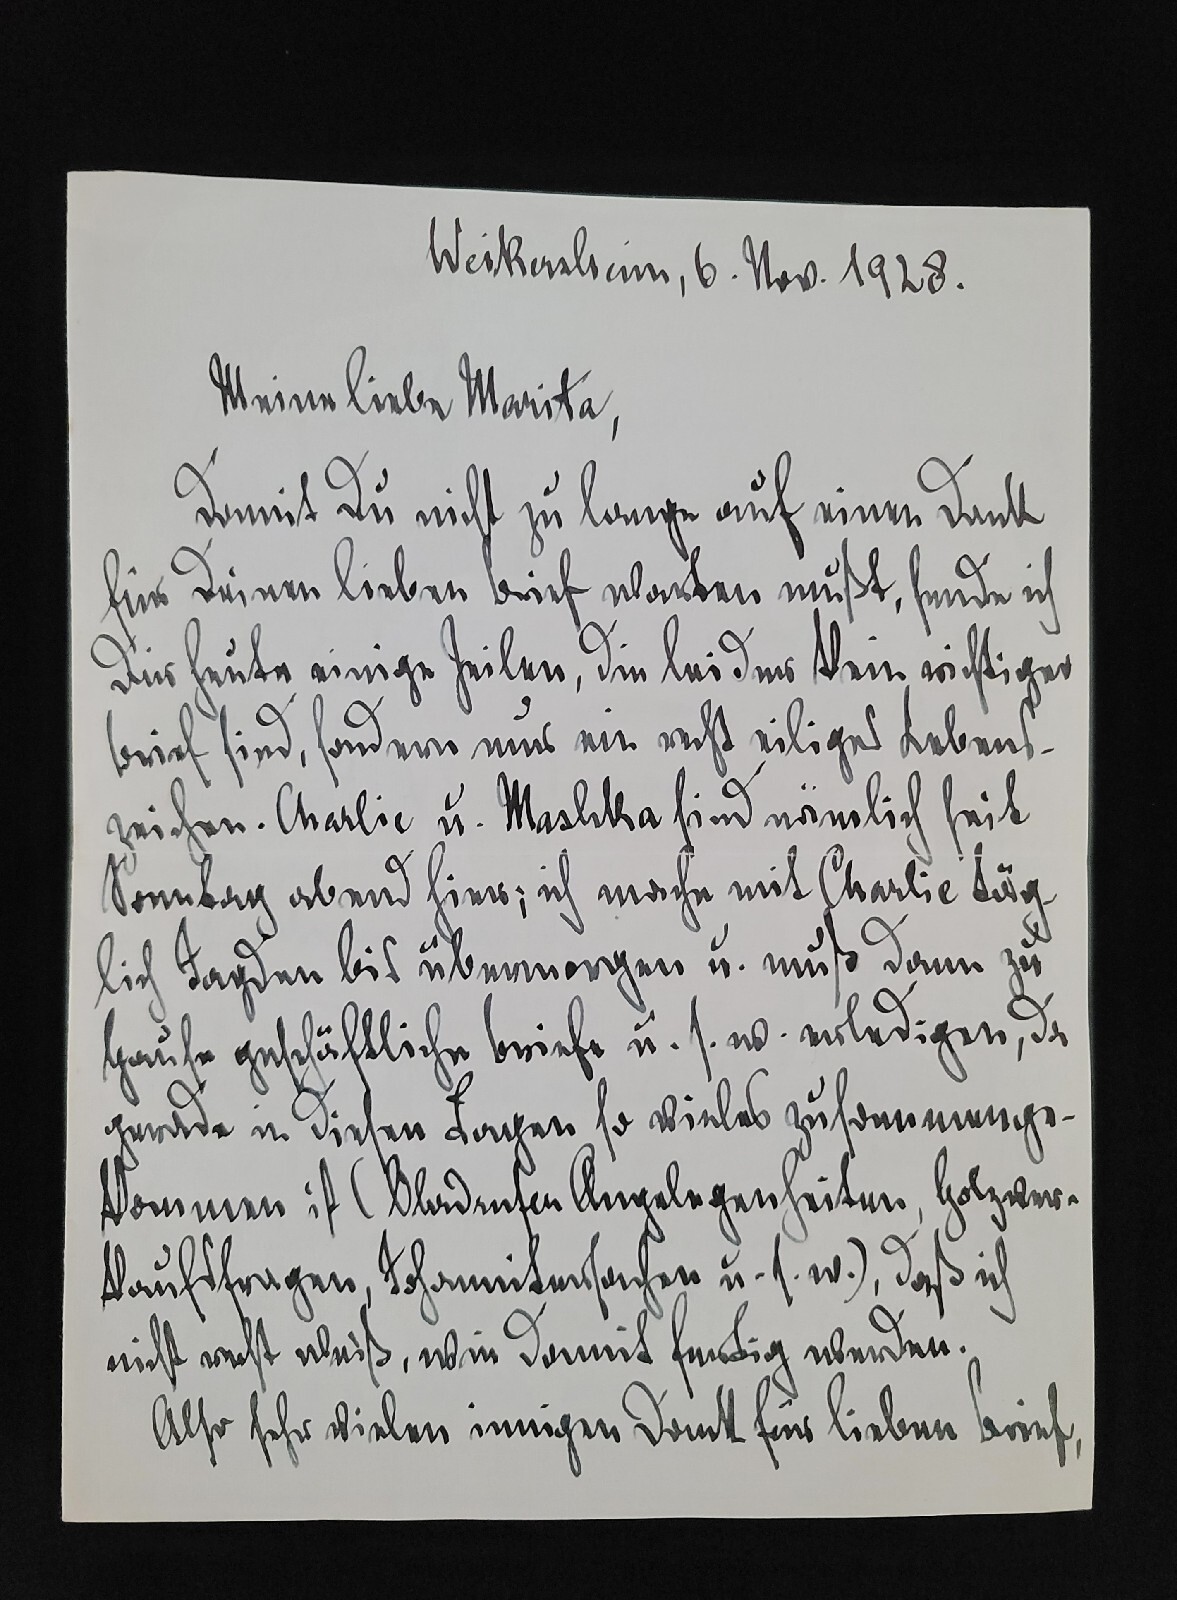 Weikersheim, 6. Nov. 1928.
Meine liebe Marita,
Damit Du nicht zu lange auf einen Dank
für Deinen lieben Brief warten mußt, sende ich
Dir heute einige Zeilen, die leider kein richtiger
Brief sind, sondern nur ein recht eiliges Lebens-
zeichen. Charlie u. Mashka sind nämlich seit
Sonntag abend hier; ich mache mit Charlie täg-
lich Jagden bis übermorgen u. muß dann zu
Hause geschäftliche Briefe u. s. w. erledigen, da
gerade in diesen Tagen so vieles zusammenge-
kommen ist ( Angelegenheiten, Holzver-
kaufsfragen, Johannitersachen u. s. w.), daß ich
nicht recht weiß, wie damit fertig werden.
Also sehr vielen innigen Dank für lieben Brief,